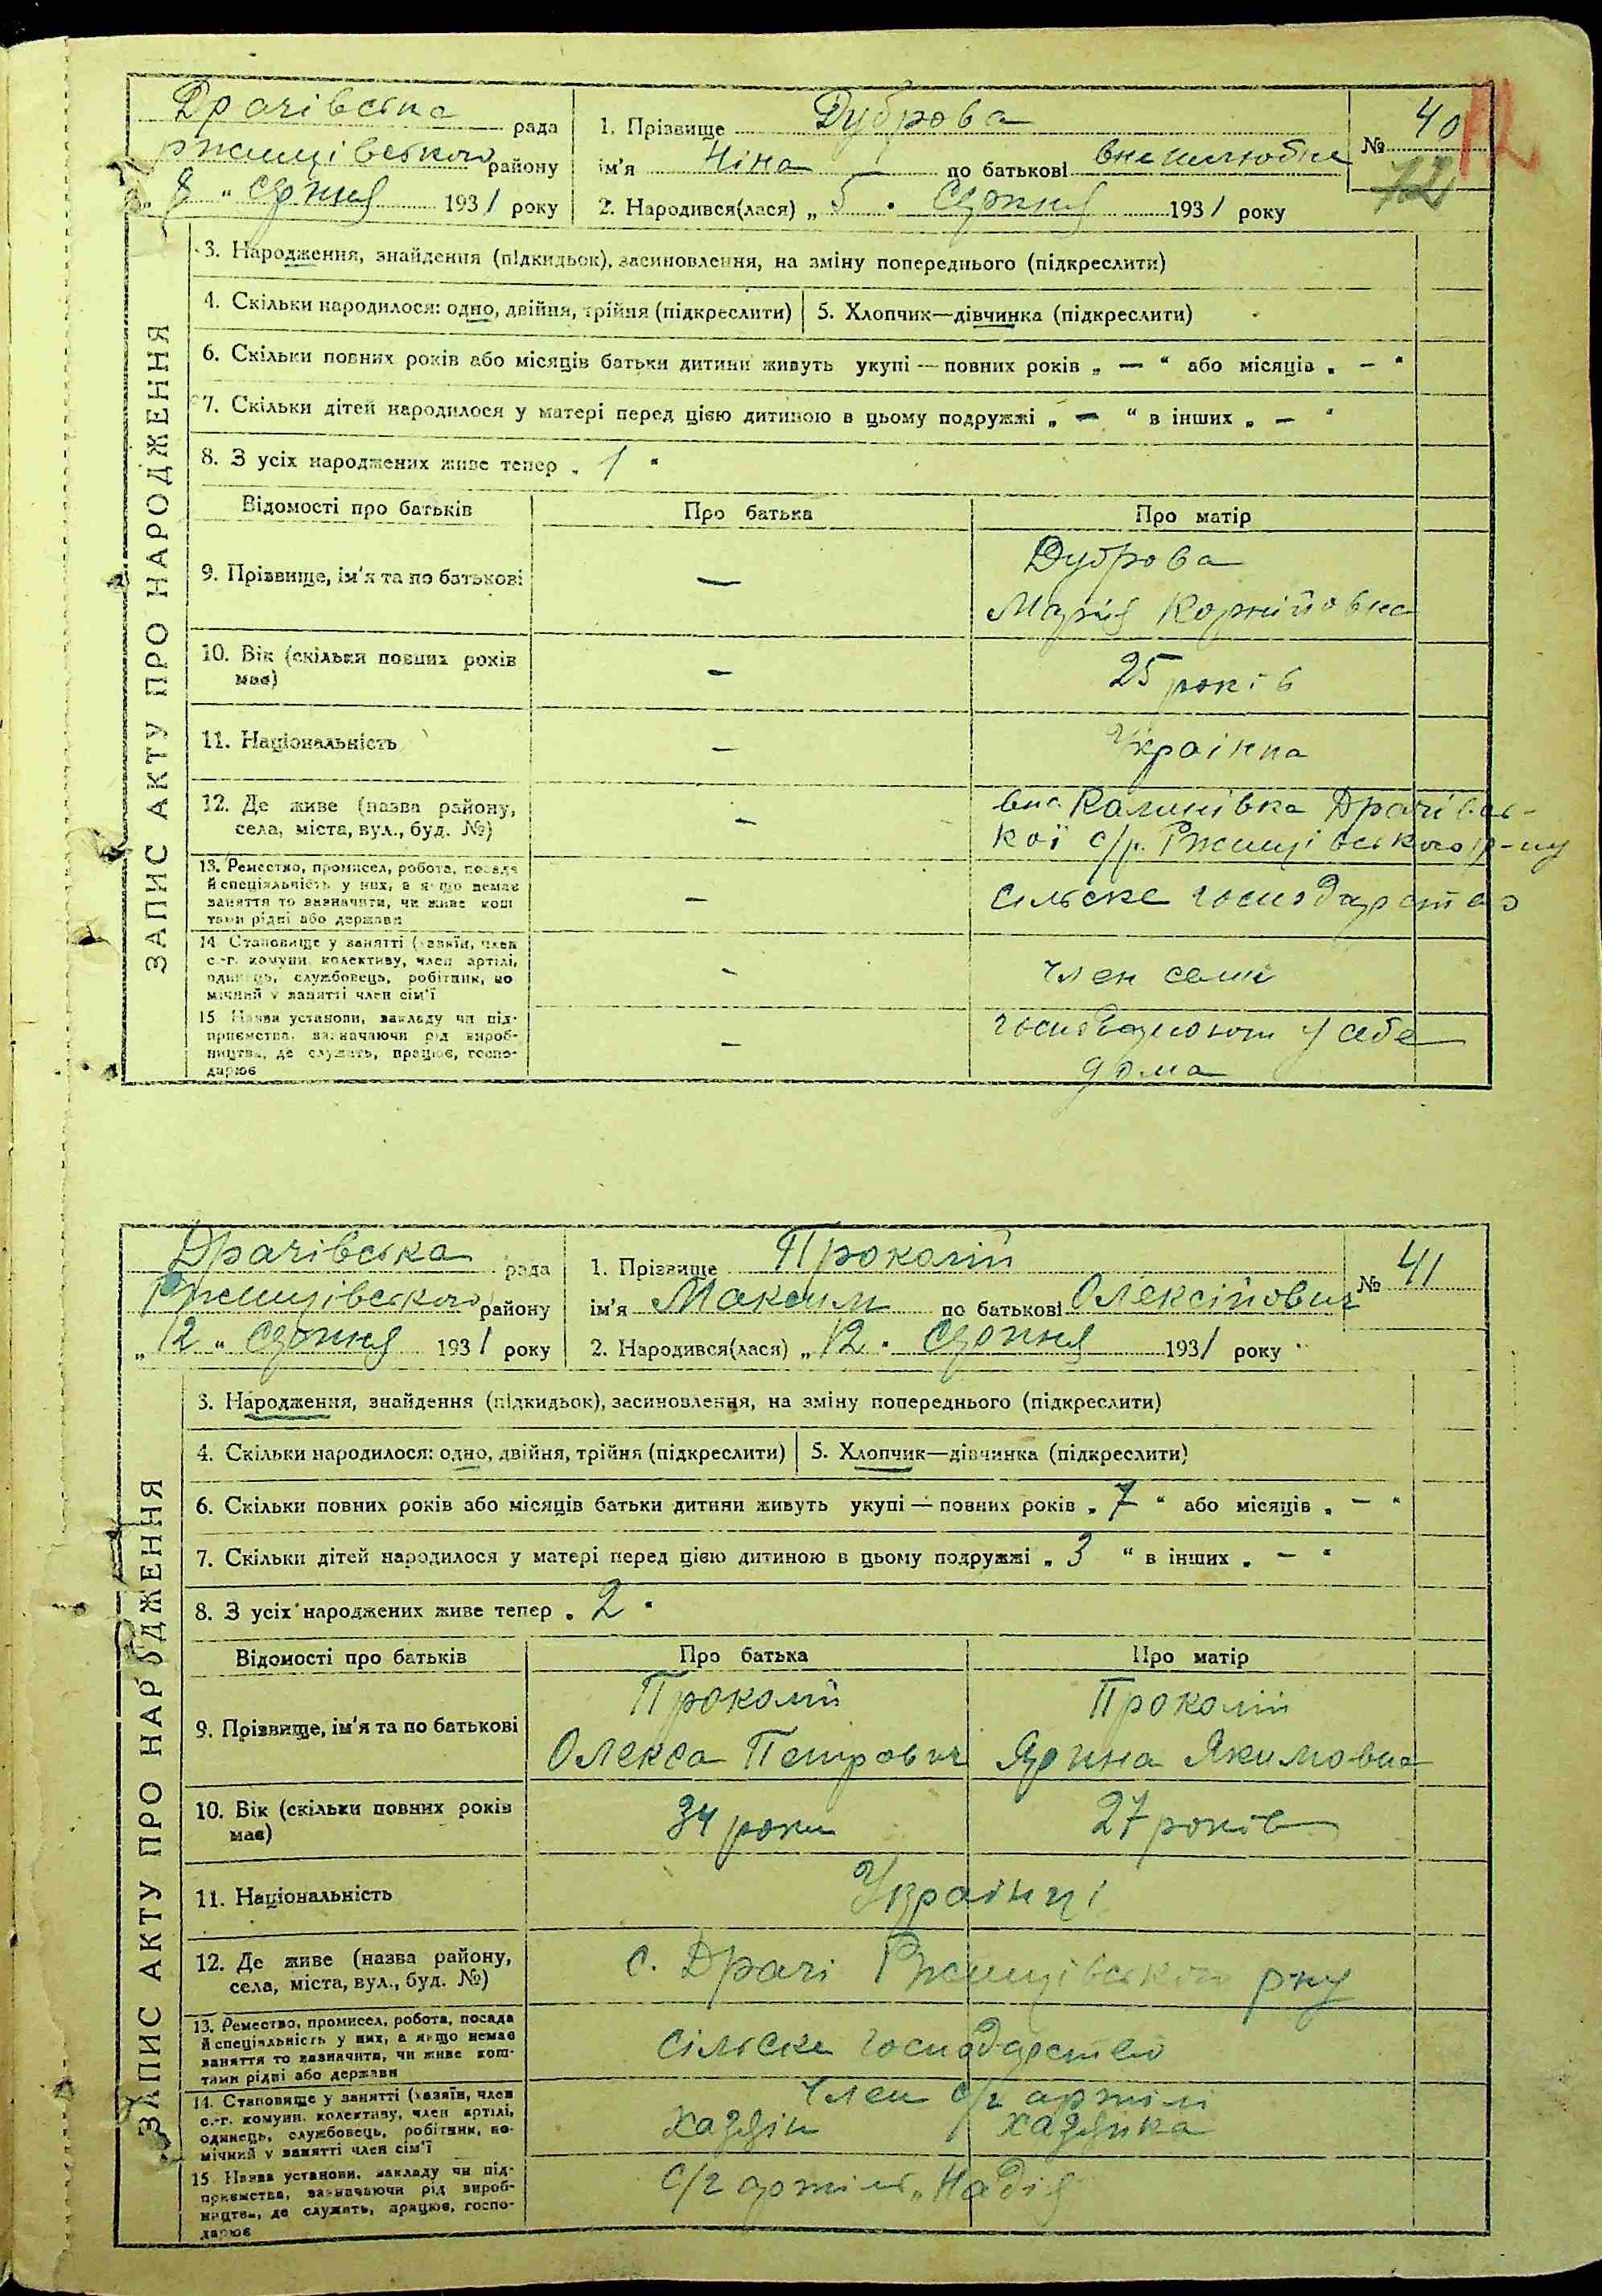 Драчівська рада
Ржищівського району
„ 8 “ Серпня 1931 року
1. Прізвище Дуброва
ім'я Ніна по батькові внешлюбна
2. Народився(лася) „ 5 “ Серпня 1931 року
№ 40
12
ЗАПИС АКТУ ПРО НАРОДЖЕННЯ
3. Народження, знайдення (підкидьок), засиновлення, на зміну попереднього (підкреслити)
4. Скільки народилося: одно, двійня, трійня (підкреслити) 5. Хлопчик—дівчинка (підкреслити)
6. Скільки повних років або місяців батьки дитини живуть укупі — повних років „ — “ або місяців „ — “
7. Скільки дітей народилося у матері перед цією дитиною в цьому подружжі „ — “ в інших „ — “
8. З усіх народжених живе тепер „ 1 “
Відомості про батьків Про батька Про матір
9. Прізвище, ім'я та по батькові — Дуброва
Марія Корнійовна
10. Вік (скільки повних років має) — 25 років
11. Національність — Українка
12. Де живе (назва району, — Калинівка Драчівсь-
села, міста, вул., буд. №) кої с/р. Ржищівського р-ну
13. Ремество, промисел, робота, посада
й спеціяльність у них, а якщо немає
заняття то зазначити, чи живе кош
тами рідні або держави — Сільске господарство
14. Становище у занятті (хазяїн, член
с.-г. комуни, колективу, член артілі,
одинець, службовець, робітник, по
мічний у занятті член сім'ї — Член семї
15. Назва установи, закладу чи під-
приємства, зазначаючи рід вироб-
ництва, де служить, працює, госпо-
дарює — господарюют у себе
дома
Драчівська рада
Ржищівського району
„ 12 “ Серпня 1931 року
1. Прізвище Проколій
ім'я Максим по батькові Олексійович
2. Народився(лася) „ 12 “ Серпня 1931 року
№ 41
ЗАПИС АКТУ ПРО НАРОДЖЕННЯ
3. Народження, знайдення (підкидьок), засиновлення, на зміну попереднього (підкреслити)
4. Скільки народилося: одно, двійня, трійня (підкреслити) 5. Хлопчик—дівчинка (підкреслити)
6. Скільки повних років або місяців батьки дитини живуть укупі — повних років „ 7 “ або місяців „ — “
7. Скільки дітей народилося у матері перед цією дитиною в цьому подружжі „ 3 “ в інших „ — “
8. З усіх народжених живе тепер „ 2 “
Відомості про батьків Про батька Про матір
9. Прізвище, ім'я та по батькові Проколій Проколій
Олекса Петрович Ярина Якимовна
10. Вік (скільки повних років 34 роки 27 років
має)
11. Національність Українці
12. Де живе (назва району, с. Драчі Ржищівського р-ну
села, міста, вул., буд. №)
13. Ремество, промисел, робота, посада
й спеціяльність у них, а якщо немає
заняття то зазначити, чи живе кош-
тами рідні або держави Сільске господарство
14. Становище у занятті (хазяїн, член
с.-г. комуни, колективу, член артілі,
одинець, службовець, робітник, по-
мічний у занятті член сім'ї Член с/г артілі
хазяїн хазяйка
15. Назва установи, закладу чи під-
приємства, зазначаючи рід вироб-
ництва, де служить, працює, госпо-
дарює С/г артіль „Надія